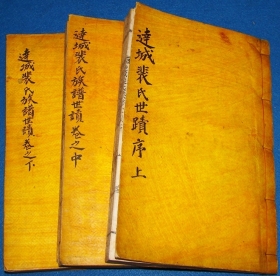 達城裴氏世蹟序 上
達城裴氏族譜世蹟 卷之中
達城裴氏族譜世蹟 卷之下